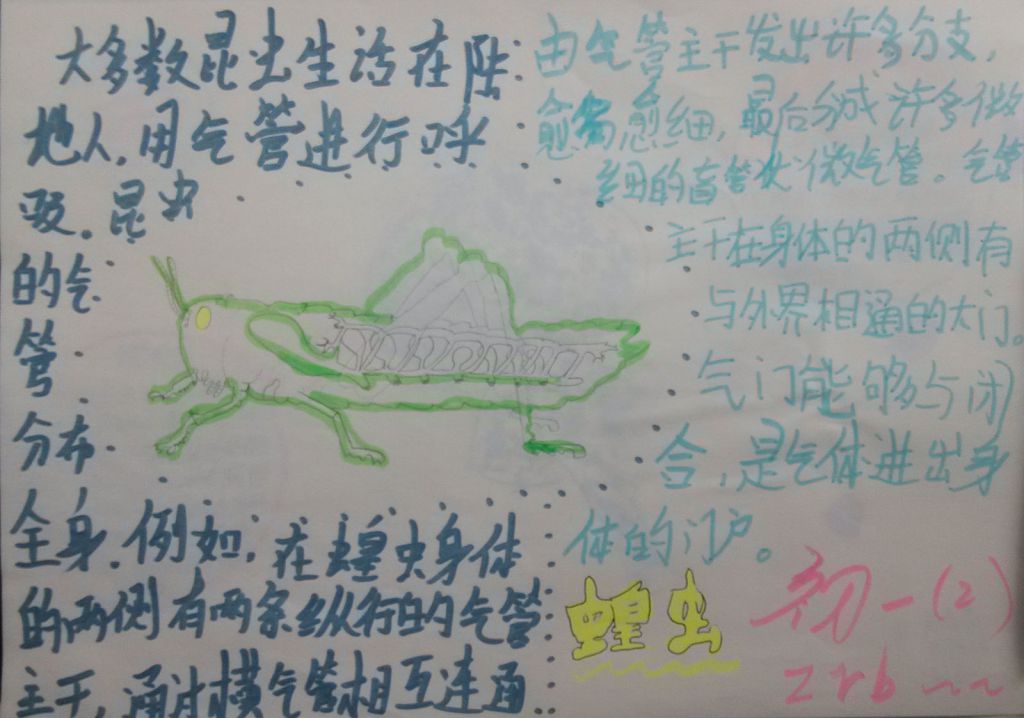 大多数昆虫生活在陆
地人,用气管进行呼
吸。昆虫
的气
管
分布
全身.例如,在蝗虫身体
的两侧有两条纵行的气管
主干,通过横气管相互连通
由气管主干发出许多分支,
愈愈细,最后分成许多微
细的盲管状微气管。气管
主干在身体的两侧有
与外界相通的大门。
气门能够与闭
合,是气体进出身
体的门户。
蝗虫
初一(2)
zrb